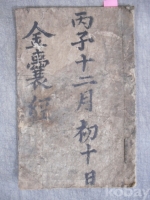 丙子十二月初十日
金囊經
kobay